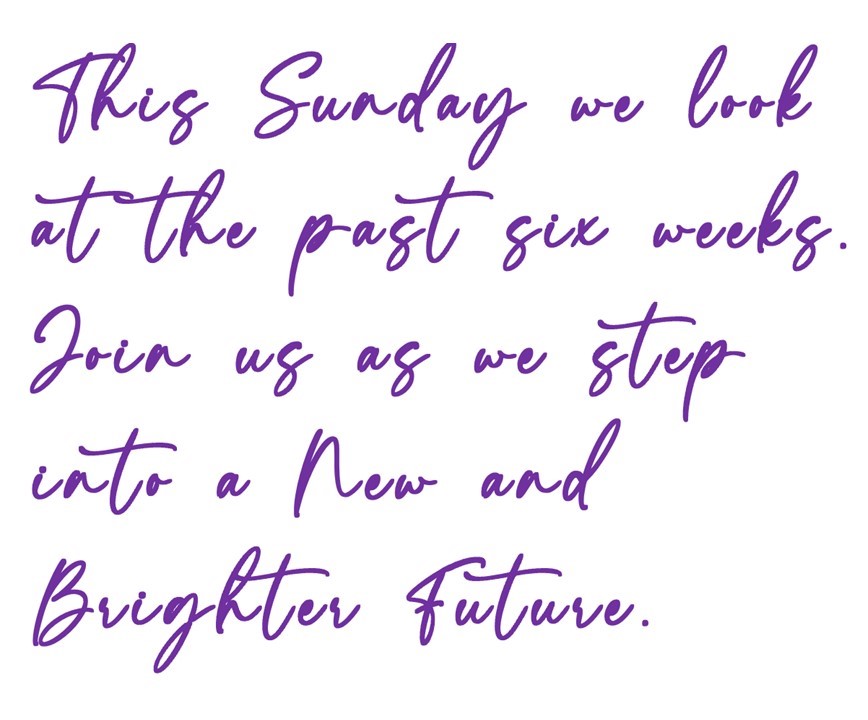 This Sunday we look
at the past six weeks.
Join us as we step
into a New and
Brighter Future.